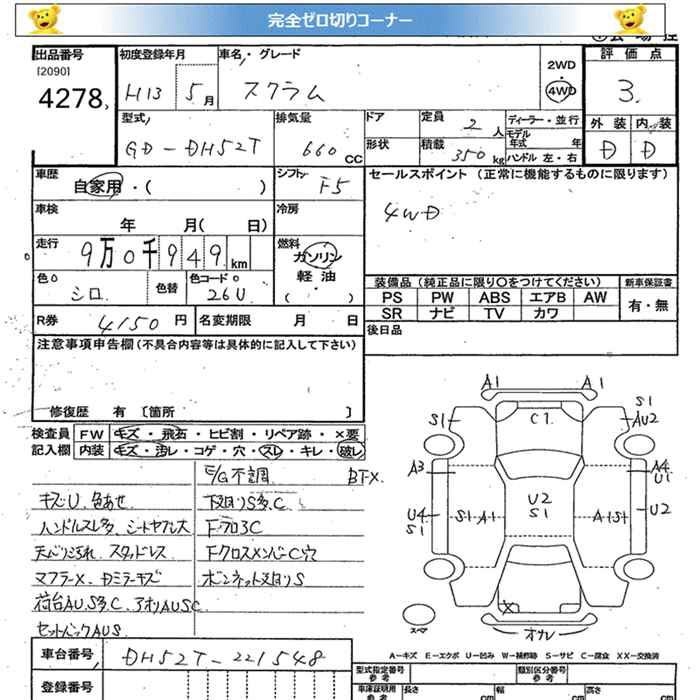 完全ゼロ切りコーナー
出品番号 初度登録年月 車名・グレード 2WD 評価点
[2090] 4278 H13 5月 スクラム ・4WD 3.
型式 排気量 ドア 定員 2人 ディーラー・並行 外装 内装
GD-DH52T 660cc 形状 積載 350kg モデル年式 年 D D
ハンドル 左・右
車歴 自家用・( ) シフト F5 セールスポイント (正常に機能するものに限ります)
車検 年 月( 日) 冷房 4WD
走行 9万0千949km 燃料 ガソリン・軽油 ( )
色 シロ 色替 色コード 26U
装備品 (純正品に限り○をつけてください) 新車保証書
PS PW ABS エアB AW 有・無
SR ナビ TV カワ
R券 4150円 名変期限 月 日 後日品
注意事項申告欄 (不具合内容等は具体的に記入して下さい)
修復歴 有 〔箇所 〕
検査員 FW キズ・飛石・ヒビ割・リペア跡・×要
記入欄 内装 キズ・汚レ・コゲ・穴・スレ・キレ・破レ
E/G不調 BT×
キズU、色あせ 下廻りS多、C
ハンドルスレ多 シートヤブレ大 FフロアC
天バリ汚れ、スタッドレス FクロスメンバーC穴
マフラー×、Dミラーキズ ボンネット廻りS
荷台AU、S多、C、アオリAUSC
セットバックAUS
A1 A1
C1
S1 S1
AU2
A3 A4
U1
U4 S1 S1 A1 U2 S1 A1S1 U2
×
スペア オカレ
A-キズ E-エクボ U-凹み W-補修跡 S-サビ C-腐食 XX-交換済
車台番号 DH52T-221548 型式指定番号 参考 類別区分番号 参考
登録番号 車庫証明用 参考 長さ cm 幅 cm 高さ cm